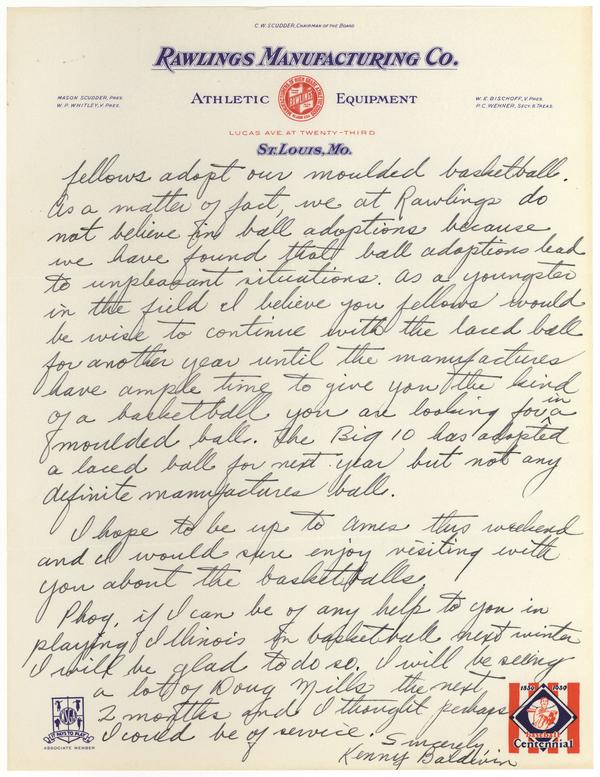 C. W. SCUDDER, CHAIRMAN OF THE BOARD
RAWLINGS MANUFACTURING CO.
MASON SCUDDER, PRES.
W. P. WHITLEY, V. PRES.
ATHLETIC EQUIPMENT
RAWLINGS
W. E. BISCHOFF, V. PRES.
P. C. WEHNER, SECY. & TREAS.
LUCAS AVE. AT TWENTY-THIRD
ST. LOUIS, MO.
fellows adopt our moulded basketball.
As a matter of fact, we at Rawlings do
not believe in ball adoptions because
we have found that ball adoptions lead
to unpleasant situations. As a youngster
in the field I believe you fellows would
be wise to continue with the laced ball
for another year until the manufactures
have ample time to give you the kind
of a basketball you are looking for in a
moulded ball. The Big 10 has adopted
a laced ball for next year but not any
definite manufactures ball.
I hope to be up to Ames this weekend
and I would sure enjoy visiting with
you about the basketballs.
Phog, if I can be of any help to you in
playing Illinois in basketball next winter
I will be glad to do so. I will be seeing
a lot of Doug Mills the next
2 months and I thought perhaps
I could be of service. Sincerely,
Kenny Baldwin
IT PAYS TO PLAY
ASSOCIATE MEMBER
1839 1939
Baseball
Centennial